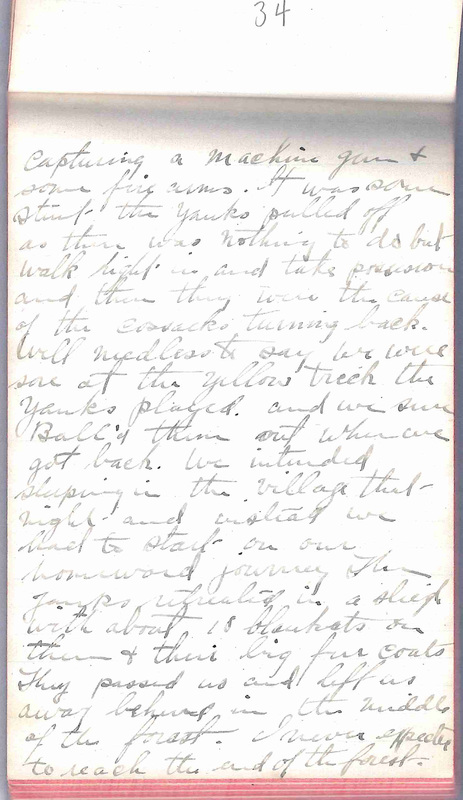 34
capturing a machine gun &
some fire arms. It was some
stunt the Yanks pulled off
as there was nothing to do but
walk right in and take possession
and then they were the cause
of the Cossacks turning back.
Well needless to say we were
sore at the yellow trick the
Yanks played. and we sure
Ball'd them out when we
got back. We intended
sleeping in the village that
night and instead we
had to start on our
homeward journey The
Yanks retreated in a sleigh
with about 18 blankets on
them & their big fur coats
They passed us and left us
away behind in the middle
of the forest. I never expected
to reach the end of the forest.